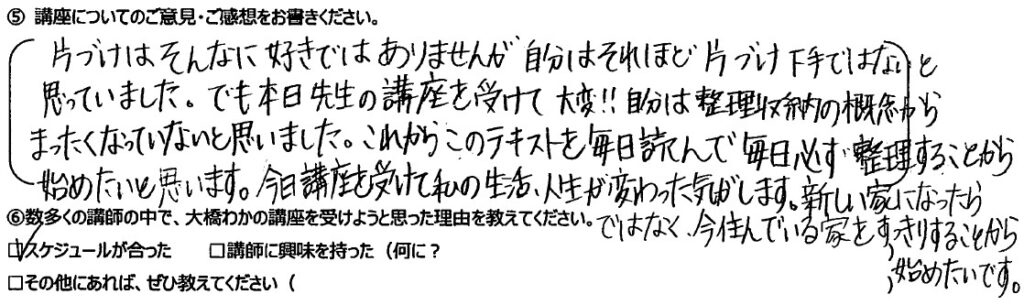 ⑤ 講座についてのご意見・ご感想をお書きください。
片づけはそんなに好きではありませんが自分はそれほど片づけ下手ではないと
思っていました。でも本日先生の講座を受けて大変!!自分は整理収納の概念から
まったくなっていないと思いました。これからこのテキストを毎日読んで毎日必ず整理することから
始めたいと思います。今日講座を受けて私の生活、人生が変わった気がします。新しい家になったら
ではなく、今住んでいる家をすっきりすることから
始めたいです。
⑥数多くの講師の中で、大橋わかの講座を受けようと思った理由を教えてください。
☑スケジュールが合った □講師に興味を持った（何に？
□その他にあれば、ぜひ教えてください（